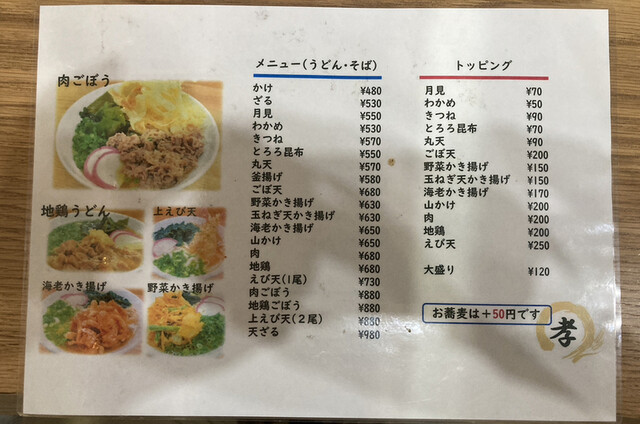 肉ごぼう
地鶏うどん
上えび天
海老かき揚げ
野菜かき揚げ
メニュー(うどん・そば)
かけ ¥480
ざる ¥530
月見 ¥550
わかめ ¥530
きつね ¥570
とろろ昆布 ¥550
丸天 ¥570
釜揚げ ¥580
ごぼ天 ¥680
野菜かき揚げ ¥630
玉ねぎ天かき揚げ ¥630
海老かき揚げ ¥650
山かけ ¥650
肉 ¥680
地鶏 ¥680
えび天(1尾) ¥730
肉ごぼう ¥880
地鶏ごぼう ¥880
上えび天(2尾) ¥880
天ざる ¥980
トッピング
月見 ¥70
わかめ ¥50
きつね ¥90
とろろ昆布 ¥70
丸天 ¥90
ごぼ天 ¥200
野菜かき揚げ ¥150
玉ねぎ天かき揚げ ¥150
海老かき揚げ ¥170
山かけ ¥200
肉 ¥200
地鶏 ¥200
えび天 ¥250
大盛り ¥120
お蕎麦は+50円です
孝